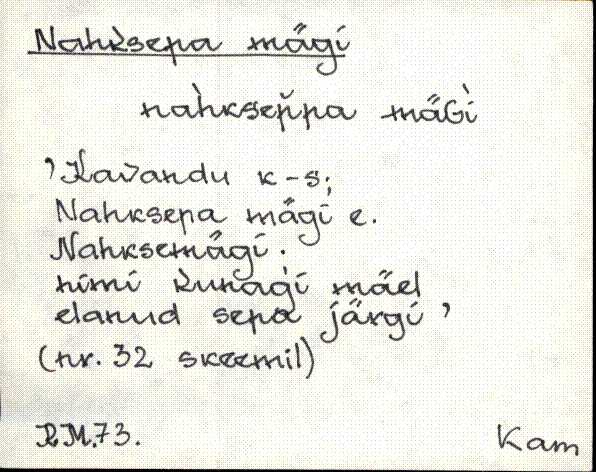 Nahksepa mägi
nahkseppa mäGi
'Kavandu k-s;
Nahksepa mägi e.
Nahksemägi.
nimi kunagi mäel
elanud sepa järgi'
(nr. 32 skeemil)
R.M.73.
Kam